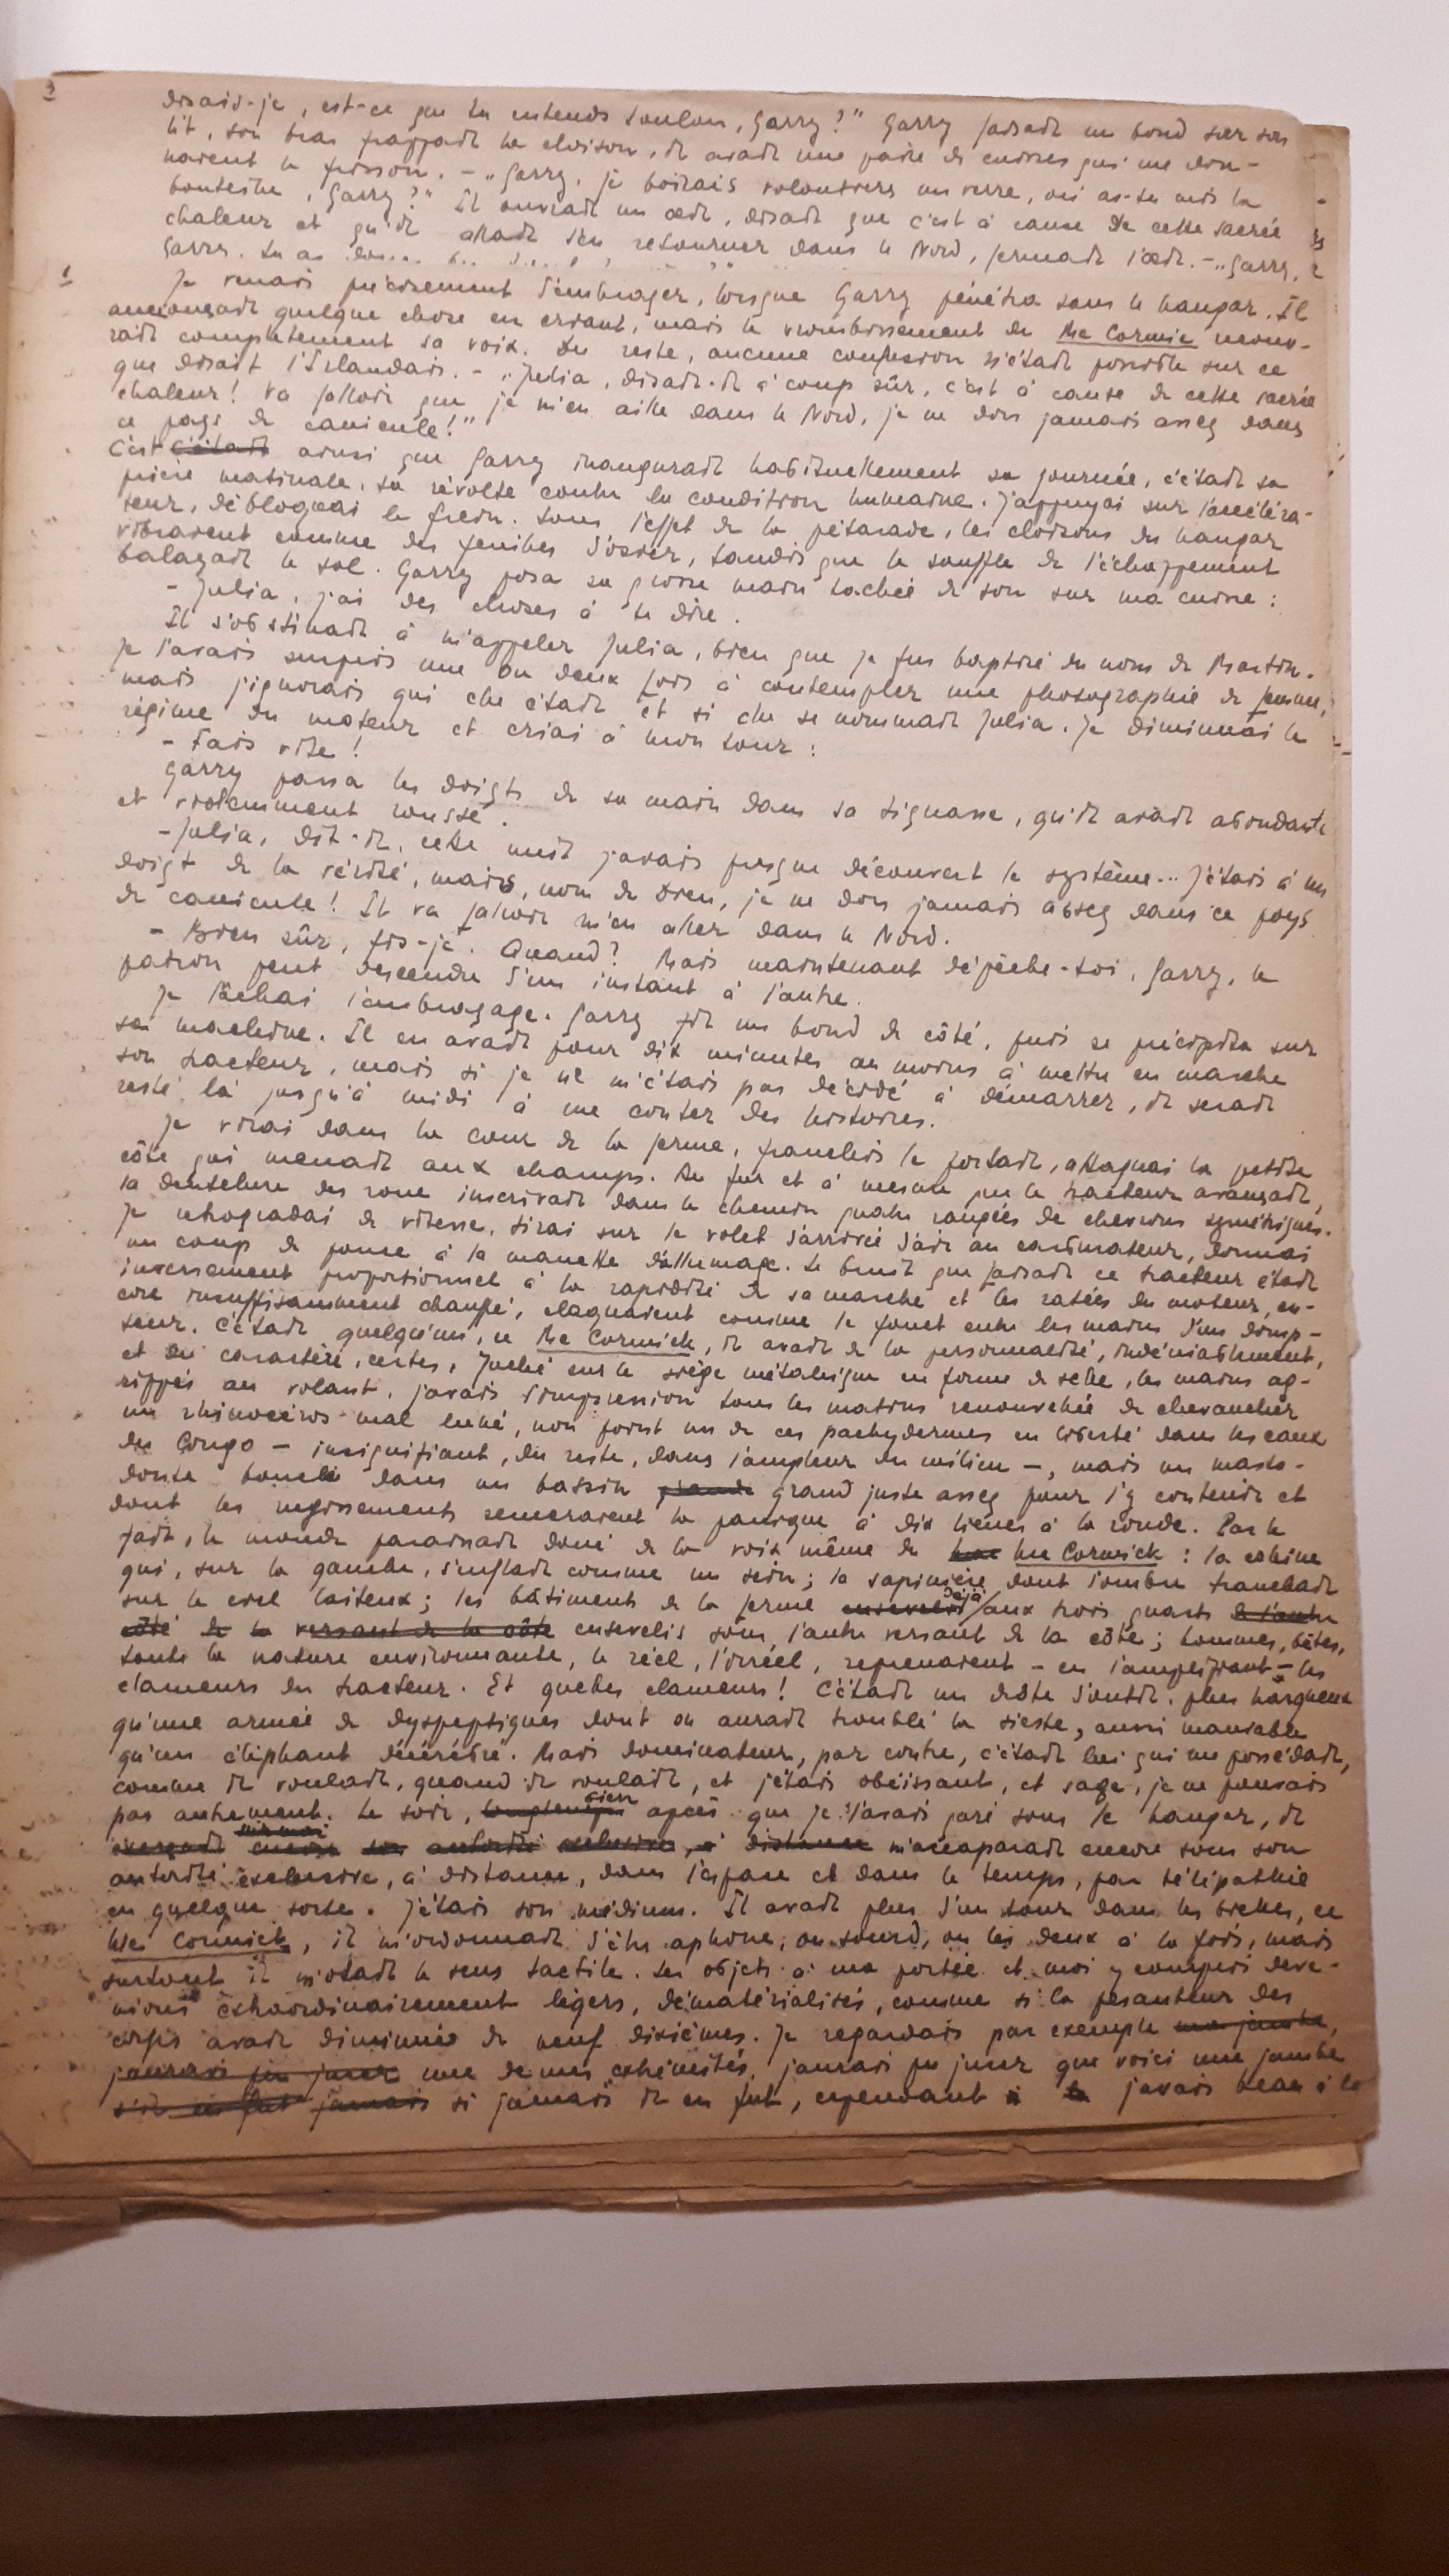 3
disais-je, est-ce que tu entends Toulon, Garry?" Garry faisait un bond sur son
lit, son bras frappait la cloison, il avait une paire de cuisses qui me don-
naient le frisson. – „Garry, je boirais volontiers un verre, où as-tu mis la
bouteille, Garry?" Il ouvrait un œil, disait que c'est à cause de cette sacrée
chaleur et qu'il allait s'en retourner dans le Nord, fermait l'œil. – „Garry,
Garry, tu as
1
Je venais précisément d'embrayer, lorsque Garry pénétra sous le hangar. Il
annonçait quelque chose en criant, mais le vrombissement du Mc Cormic recou-
vrait complètement sa voix. Du reste, aucune confusion n'était possible sur ce
que disait l'Irlandais. – „Julia, disait-il à coup sûr, c'est à cause de cette sacrée
chaleur! Va falloir que je m'en aille dans le Nord, je ne dors jamais assez dans
ce pays de canicule!"
C'est c'était ainsi que Garry inaugurait habituellement sa journée, c'était sa
prière matinale, sa révolte contre la condition humaine. J'appuyai sur l'accéléra-
teur, débloquai le frein. Sous l'effet de la pétarade, les cloisons du hangar
vibraient comme des feuilles d'osier, tandis que le souffle de l'échappement
balayait le sol. Garry posa sa grosse main tachée de son sur ma cuisse :
– Julia, j'ai des choses à te dire.
Il s'obstinait à m'appeler Julia, bien que je fus baptisé du nom de Martin.
Je l'avais surpris une ou deux fois à contempler une photographie de femme,
mais j'ignorais qui elle était et si elle se nommait Julia. Je diminuai le
régime du moteur et criai à mon tour :
– Fais vite!
Garry passa les doigts de sa main dans sa tignasse, qu'il avait abondante
et violemment rousse.
– Julia, dit-il, cette nuit j'avais presque découvert le système... J'étais à un
doigt de la vérité, mais, nom de Dieu, je ne dors jamais assez dans ce pays
de canicule! Il va falloir m'en aller dans le Nord.
– Bien sûr, fis-je. Quand? Mais maintenant dépêche-toi, Garry, le
patron peut descendre d'un instant à l'autre.
Je lâchai l'embrayage. Garry fit un bond de côté, puis se précipita sur
sa machine. Il en avait pour dix minutes au moins à mettre en marche
son tracteur, mais si je ne m'étais pas décidé à démarrer, il serait
resté là jusqu'à midi à me conter des histoires.
Je virai dans la cour de la ferme, franchis le portail, attaquai la petite
côte qui menait aux champs. Au fur et à mesure que le tracteur avançait,
la dentelure des roues inscrivait dans le chemin quatre rangées de chevrons symétriques.
Je rétrogradai de vitesse, tirai sur le volet d'arrivée d'air au carburateur, donnai
un coup de pouce à la manette d'allumage. Le bruit que faisait ce tracteur était
inversement proportionnel à la rapidité de sa marche et les ratées du moteur, en-
core insuffisamment chauffé, claquaient comme le fouet entre les mains d'un domp-
teur. C'était quelqu'un, ce Mc Cormick, il avait de la personnalité, indéniablement,
et du caractère, certes. Juché sur le siège métallique en forme de selle, les mains ag-
rippées au volant, j'avais l'impression tous les matins renouvelée de chevaucher
un rhinocéros mal luné, non point un de ces pachydermes en liberté dans les eaux
du Congo – insignifiant, du reste, dans l'ampleur du milieu –, mais un masto-
donte bouclé dans un bassin grande grand juste assez pour l'y contenir et
dont les rugissements sèmeraient la panique à dix lieues à la ronde. Par le
fait, le monde paraissait doué de la voix même de Mc Cormick : la colline
qui, sur la gauche, s'enflait comme un sein; la sapinière dont l'ombre tranchait
sur le ciel laiteux; les bâtiments de la ferme ensevelis déjà aux trois quarts de l'autre
côté de le versant de la côte ensevelis sous l'autre versant de la côte; hommes, bêtes,
toute la nature environnante, le réel, l'irréel, reprenaient – en l'amplifiant – les
clameurs du tracteur. Et quelles clameurs! C'était un drôle d'outil, plus hargneux
qu'une armée de dyspeptiques dont on aurait troublé la sieste, aussi maniable
qu'un éléphant décérébré. Mais dominateur, par contre, c'était lui qui me possédait,
comme il voulait, quand il voulait, et j'étais obéissant, et sage, je ne pouvais
pas autrement. Le soir, longtemps bien après que je l'avais garé sous le hangar, il
exerçait encore sur moi son autorité exclusive, à distance m'accaparait encore sous son
autorité exclusive, à distance, dans l'espace et dans le temps, par télépathie
en quelque sorte. J'étais son médium. Il avait plus d'un tour dans les bielles, ce
Mc Cormick, il m'ordonnait d'être aphone, ou sourd, ou les deux à la fois, mais
surtout il m'ôtait le sens tactile. Les objets à ma portée et moi y compris deve-
nions extraordinairement légers, dématérialisés, comme si la pesanteur des
corps avait diminué de neuf dixièmes. Je regardais par exemple ma jambe,
j'aurais pu jurer une de mes extrémités, j'aurais pu jurer que voici une jambe
s'il en fut jamais si jamais il en fut, cependant j'avais beau à la